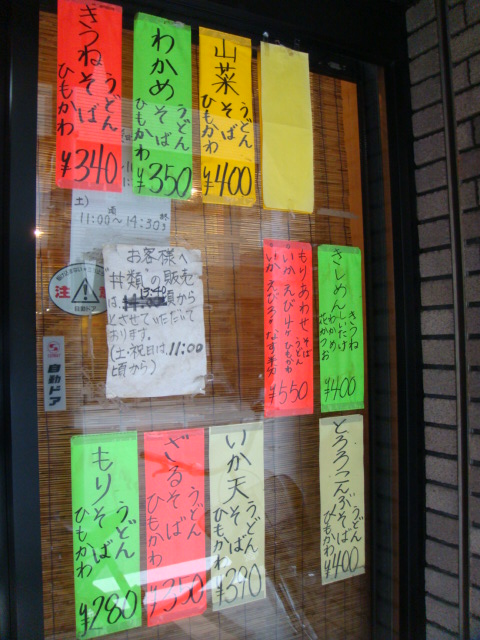 きつね
うどん
そば
ひもかわ
¥340
わかめ
うどん
そば
ひもかわ
¥350
山菜
うどん
そば
ひもかわ
¥400
土)
11:00〜14:30
注
自動ドア
お客様へ
"丼類"の販売
は、13:40頃から
とさせていただいて
おります。
(土・祝日は、11:00
頃から)
自動ドア
もりあわせ
そば
うどん
ひもかわ
いか
¥550
きしめん
きつね
しいたけ
わかめ
花かつお
¥400
もり
うどん
そば
ひもかわ
¥280
ざる
うどん
そば
ひもかわ
¥350
いか天
うどん
そば
ひもかわ
¥390
とろろこんぶ
うどん
そば
ひもかわ
¥400